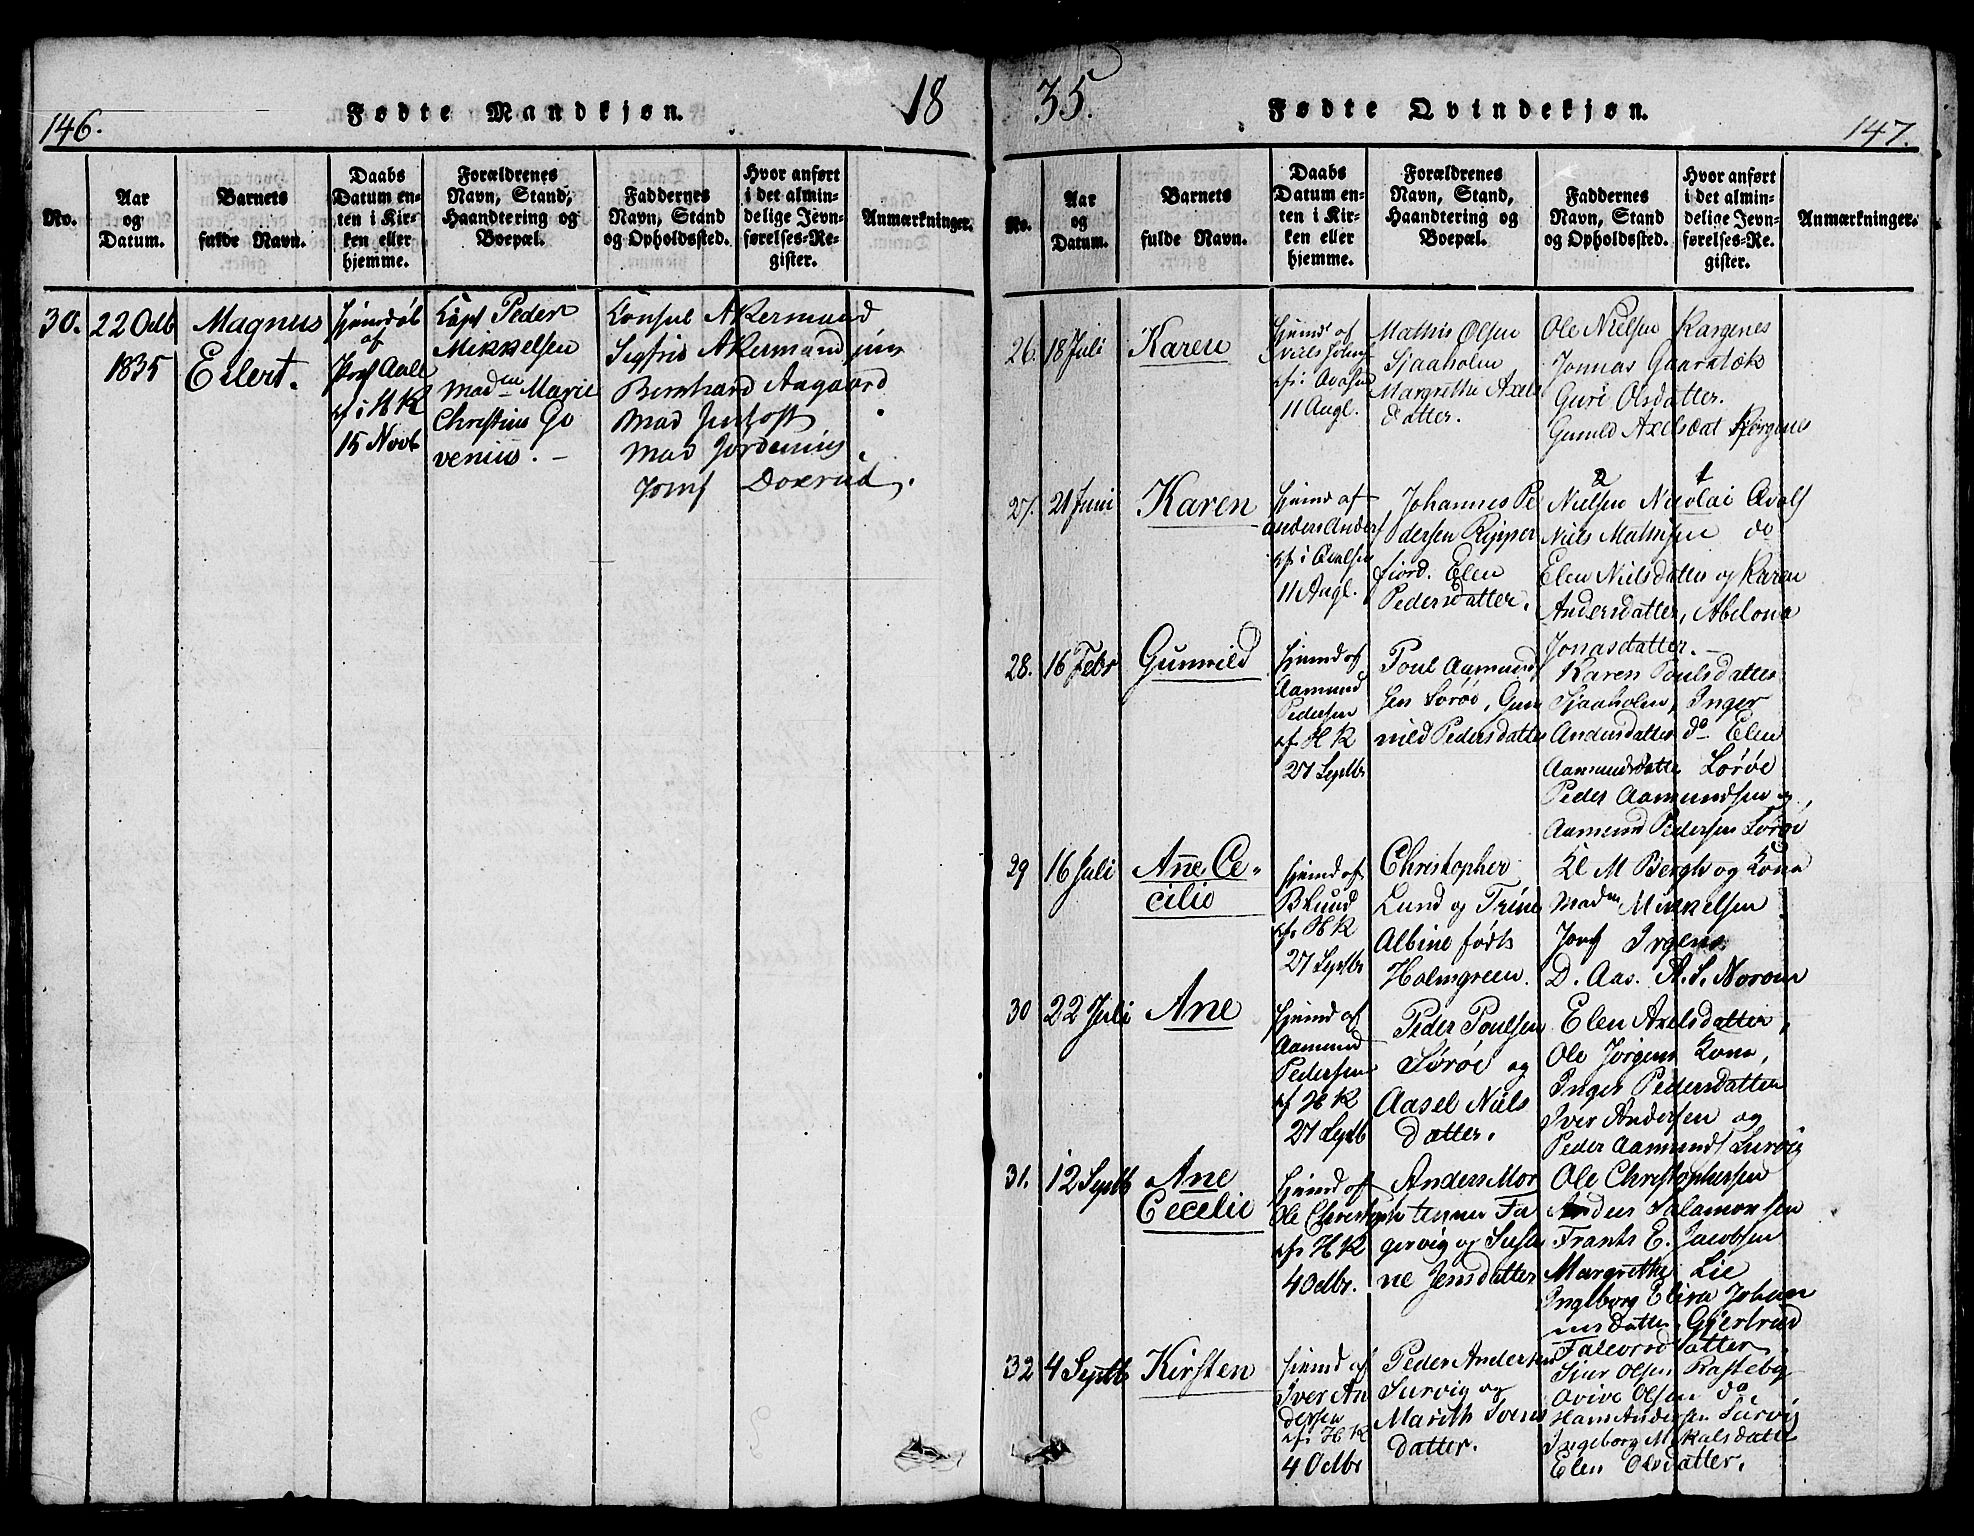 146.
Fødte Mandkjøn.
18
No.
Aar
og
Datum.
Barnets
fulde Navn.
Daabs
Datum en-
ten i Kir-
ken eller
hjemme.
Forældrenes
Navn, Stand,
Haandtering og
Boepæl.
Faddernes
Navn, Stand
og Opholdssted.
Hvor anført
i det almin-
delige Jevn-
førelses-Re-
gister.
Anmærkninger.
30.
22 Octb
1835
Magnus
Eilert.
Hjemdøb
af
Aall
i H K
15 Novb
Capt Peder
Mikkelsen
Mad Marie
Christine Go
venius. -
Consul Akermand
Sigfrid Akermand jun
Bernhard Aagaard
Mad Justoft
Mad Jordenius
Jomf Doxrud.
35.
Fødte Qvindekjøn.
147.
No.
Aar
og
Datum.
Barnets
fulde Navn.
Daabs
Datum en-
ten i Kir-
ken eller
hjemme.
Forældrenes
Navn, Stand,
Haandtering og
Boepæl.
Faddernes
Navn, Stand
og Opholdssted.
Hvor anført
i det almin-
delige Jevn-
førelses-Re-
gister.
Anmærkninger.
26.
18 Juli
Karen
11 Augl.
Mathis Olsen
Sjaaholm
Margrethe Axels
datter.
Ole Nielsen Kargenes
Jonnas
Guri Olsdatter.
Gunild Axelsdat
27.
21 Juni
Karen
Hjemd af
Anders Ander
11 Augl.
Johannes Pe
dersen Ripper
fiord. Elen
Pedersdatter.
Nielsen Nicolai
Niels Mathisen do
Elen Nielsdatter og Karen
Andersdatter, Abelona
Jonasdatter. -
28.
16 Febr
Gunnild
Hjemd af
Aamund
Pedersen
H K
27 Septbr
Poul Aamund
sen Sørøe, Gun
nild Pedersdatter
Karen Poulsdatter
Sjaaholm, Inger
Andersdatter do Elen
Aamundsdatter Sørøe
Peder Aamundsen og
Aamund Pedersen Sørøe
29
16 Juli
Ane Ce-
cilie
Hjemd af
B Lund
H K
27 Septbr
Christopher
Lund og Trine
Albine født
Holmgreen.
Kl M Bergh og Kona
Mad Mikkelsen
Jomf Irgens
D. Aas. A. S. Norom
30
22 Juli
Ane
Hjemd af
Aamund
Pedersen
H K
27 Septb
Peder Poulsen
Sørøe og
Aasel Niels
datter.
Elen Axelsdatter,
Ole Jørgens Kona,
Inger Pedersdatter
Iver Andersen og
Peder Aamunds Survig
31.
12 Septb
Ane
Cecelie
Hjemd af
Ole Christoph
H K
4 Octbr.
Anders Mor
tensen Fa
gervig og
ne Jensdatter
Ole Christophersen
Anders Salamonsen
Frants E. Jacobsen
Margrethe Lie
Ingeborg Elisa Johan
nesdatter, Giertrud
32
4 Septb
Kirsten
Hjemd af
Iver An
dersen
H K
4 Octbr
Peder Andersen
Survig og
Marith Svens
datter.
Siur Olsen Rastebg
Ovive Olsen do
Hans Andersen Survig
Ingeborg Mikalsdatter
Elen Olsdatter.